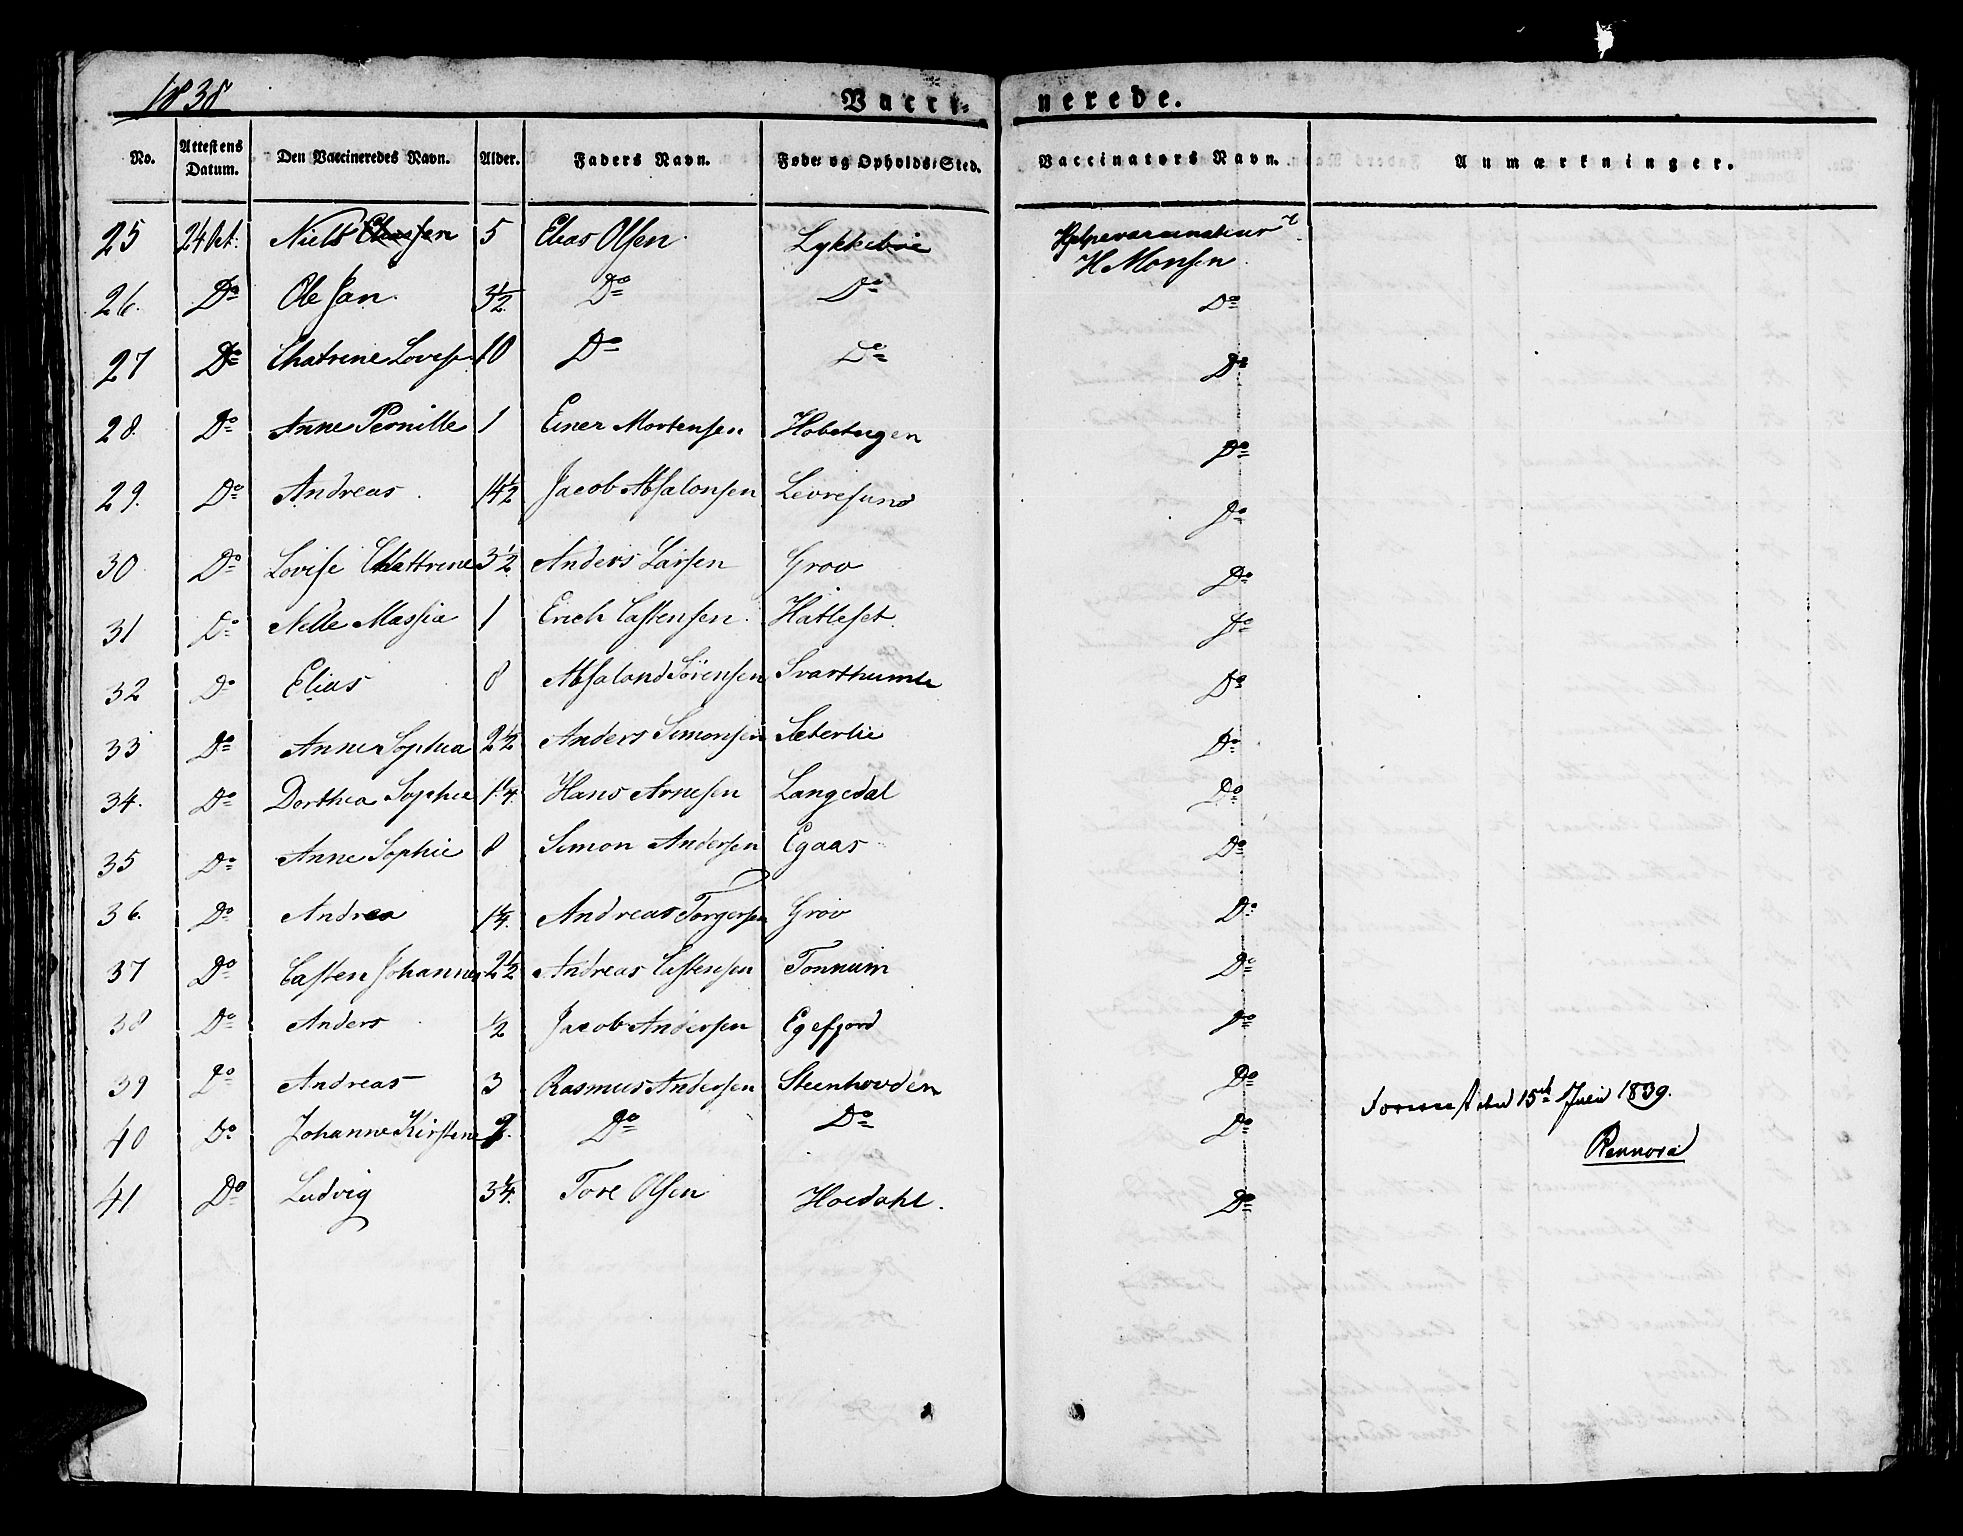 1838 Vacci- nerede.
No. Attestens Datum. Den Vaccineredes Navn. Alder. Faders Navn. Føde- og Opholds-Sted. Vaccinators Navn. Anmærkninger.
25 24 Oct. Niels 5 Elias Olsen Lykkeboe Hjelpevaccinateur
H Monsen
26. Do Ole Jan 3 1/2 Do Do Do
27 Do Chatrine Lovise 10 Do Do Do
28. Do Anne Pernille 1 Einer Mortensen Do
29. Do Andreas 14 1/2 Jacob Absalonsen Levresund Do
30 Do Lovise Chattrine 3 1/2 Anders Larsen Grov Do
31 Do Nille Massia 1 Erich Castensen Hatleset Do
32 Do Elias 8 Absalond Sørensen Svarthumle Do
33 Do Anne Sophea 2 1/2 Anders Simonsen Sæterlie Do
34. Do Dorthea Sophie 1 1/4 Hans Arnesen Langedal Do
35 Do Anne Sophie 8 Simon Andersen Egaas Do
36. Do Andrea 1 1/4 Andreas Torgersen Grov Do
37 Do Casten Johannes 2 1/2 Andreas Castensen Tonnum Do
38 Do Anders 1/2 Jacob Andersen Egefjord Do
39 Do Andreas 3 Rasmus Andersen Steenhovden Do
15de Juli 1839.
40 Do Johanne Kirstine Do Do Do
Rennord
41 Do Ludvig 3 1/4 Tore Olsen Hoedahl. Do